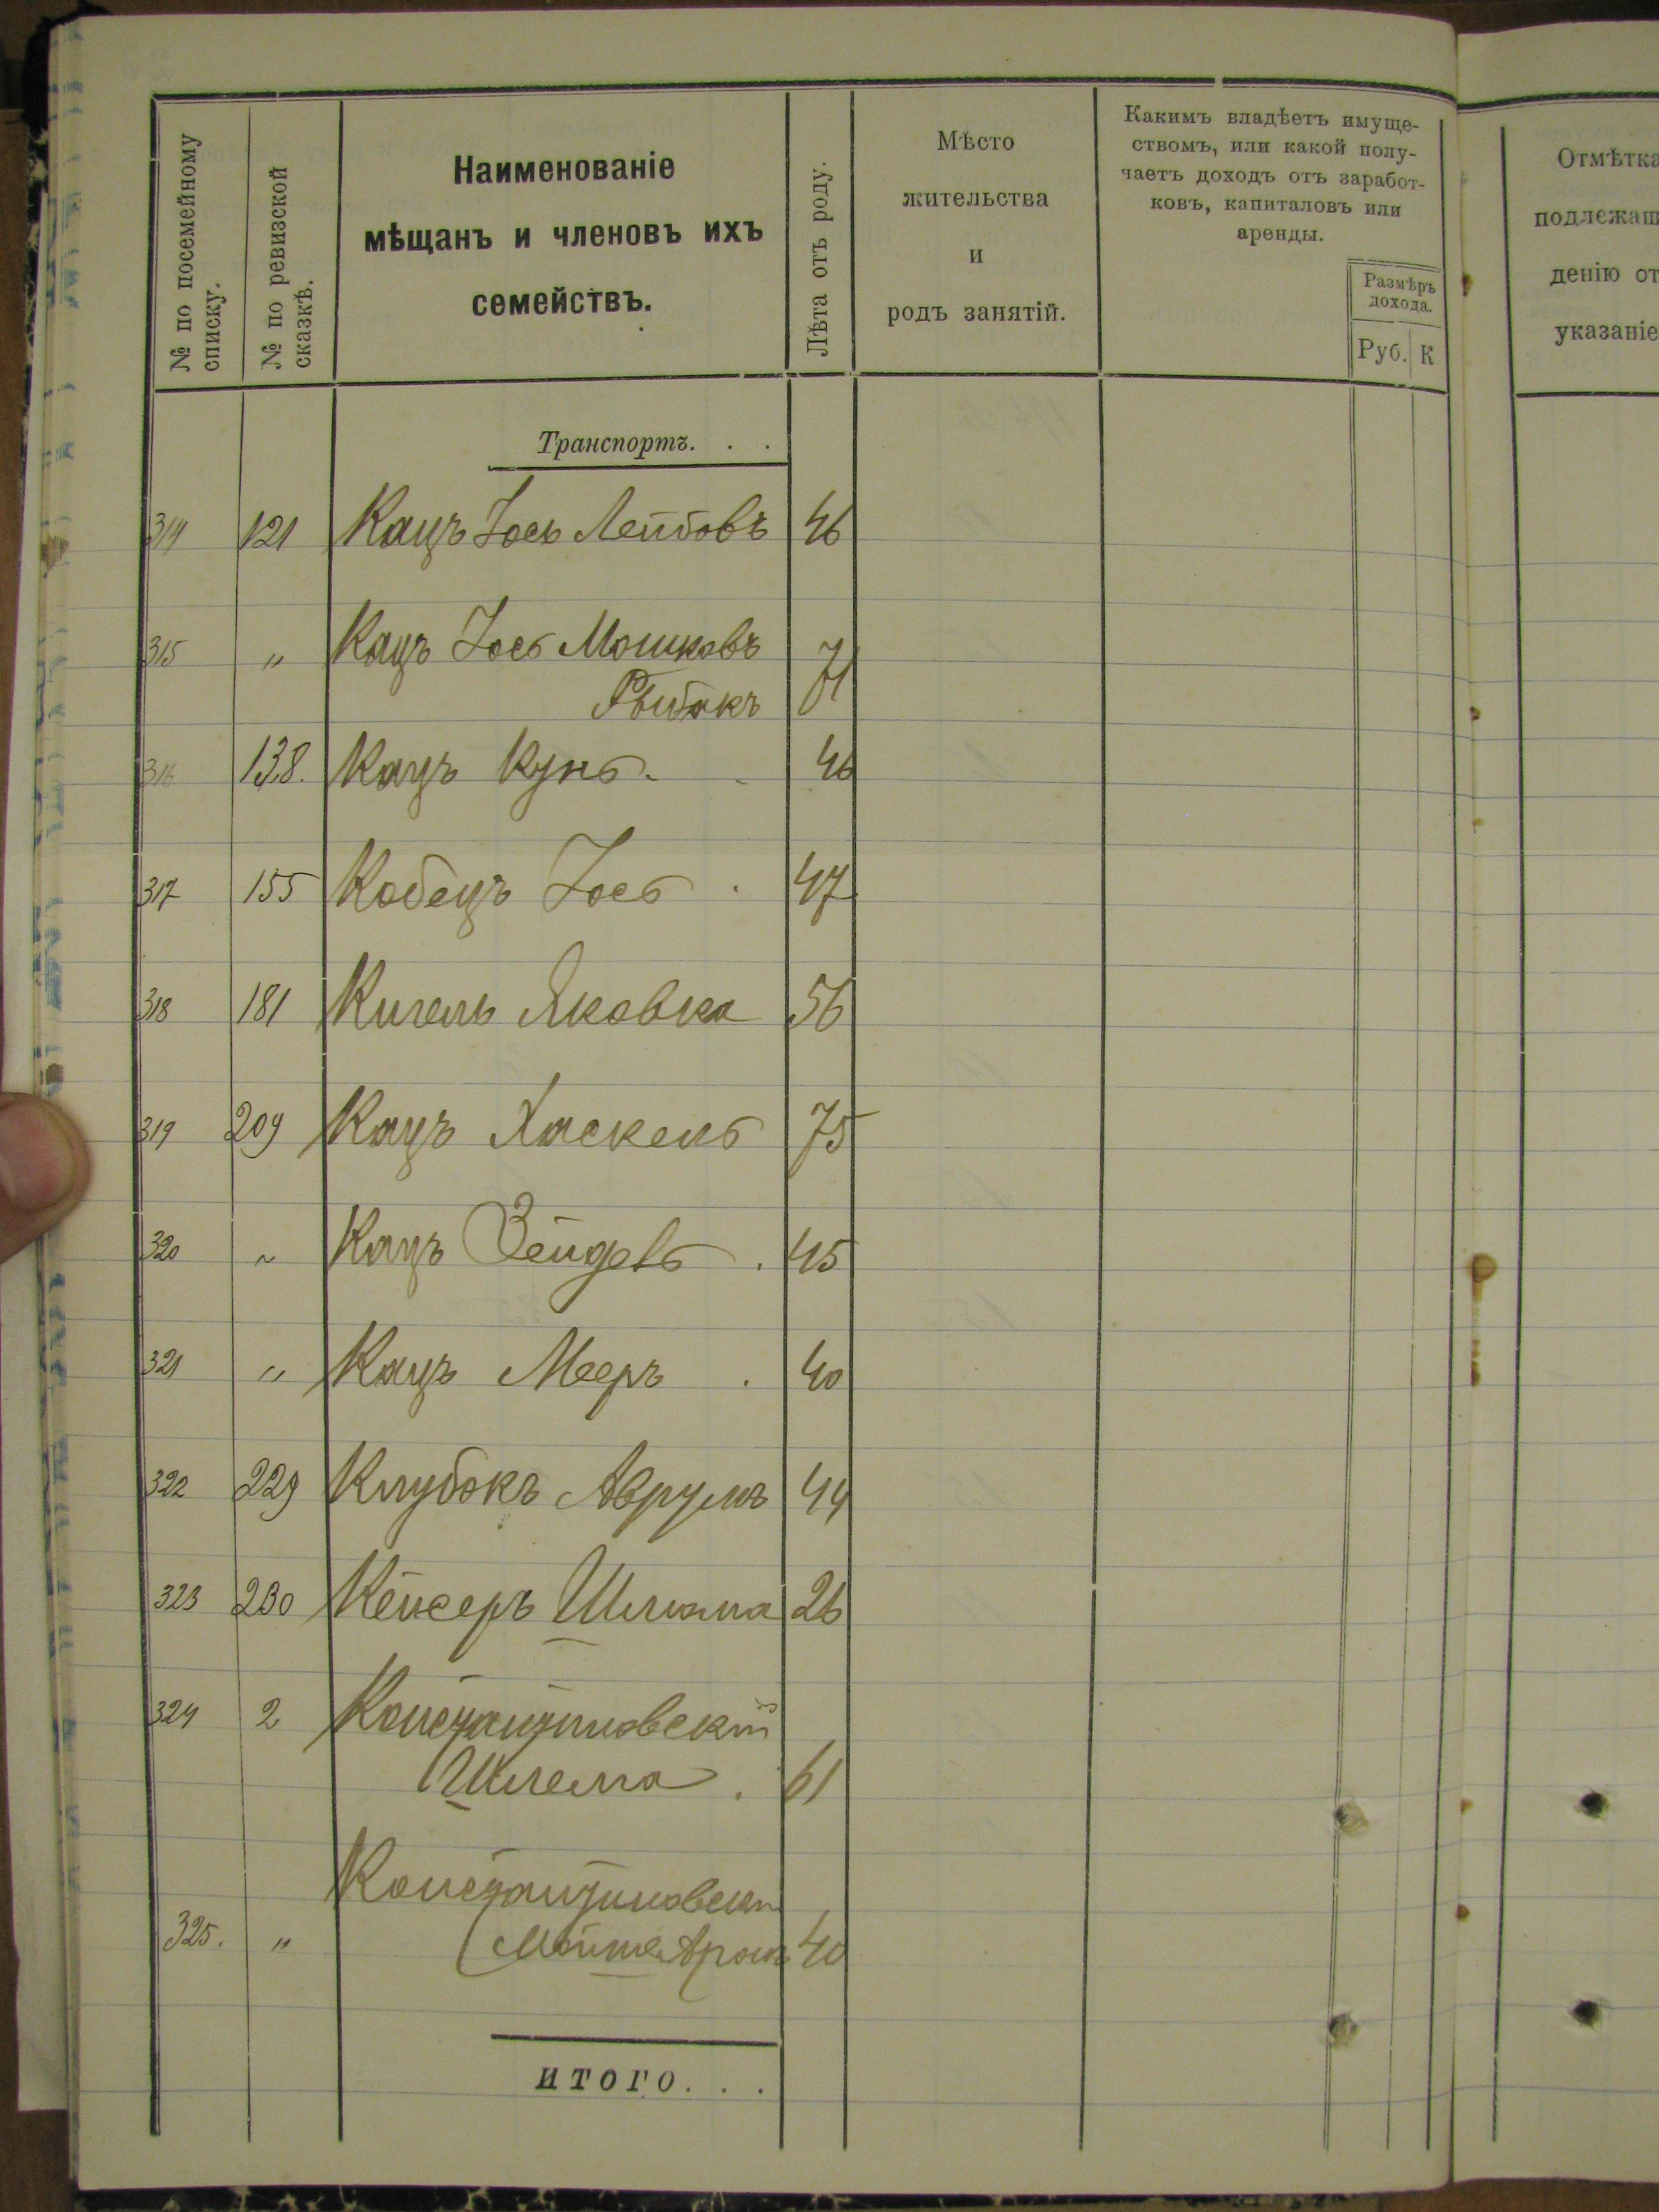 № по посемейному
списку.
№ по ревизской
сказкѣ.
Наименованіе
мѣщанъ и членовъ ихъ
семействъ.
Лѣта отъ роду.
Мѣсто
жительства
и
родъ занятій.
Какимъ владѣетъ имуще-
ствомъ, или какой полу-
чаетъ доходъ отъ заработ-
ковъ, капиталовъ или
аренды.
Размѣръ
дохода.
Руб. К
Отмѣтка
подлежащ
денію от
указаніе
Транспортъ. . .
314 121 Кацъ Іось Лейбовъ 46
315 " Кацъ Іось Мошковъ 71
316 138. Кацъ Кунь 46
317 155 Кобецъ Іось 47
318 181 Кигель Яковка 56
319 209 Кацъ Хаскель 75
320 " Кацъ Зейдель 45
321 " Кацъ Мееръ 40
322 229 Клубокъ Аврумъ 44
323 230 Кейсеръ Шлиома 26
324 2 Константиновскій
Шлема 61
Константиновскі
325. " 40
итого. . .